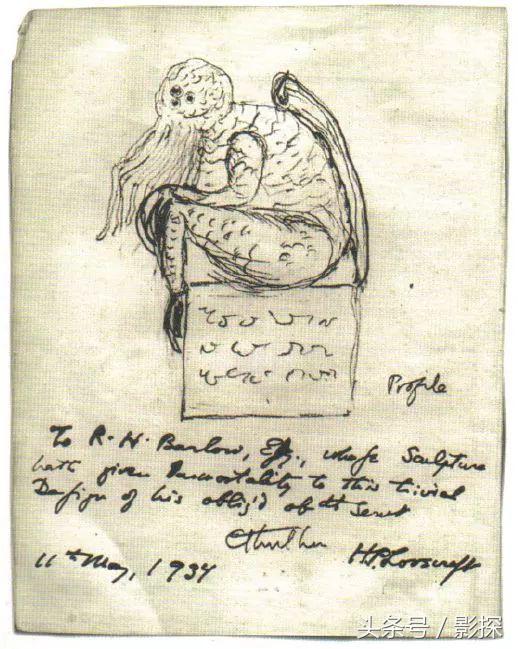 Profile
To R. H. Barlow, Esq., whose Sculpture
hath given Immortality to this trivial
Design of his oblig'd obt Servt
Cthulhu
11th May, 1934 HPLovecraft
头条号 / 影探